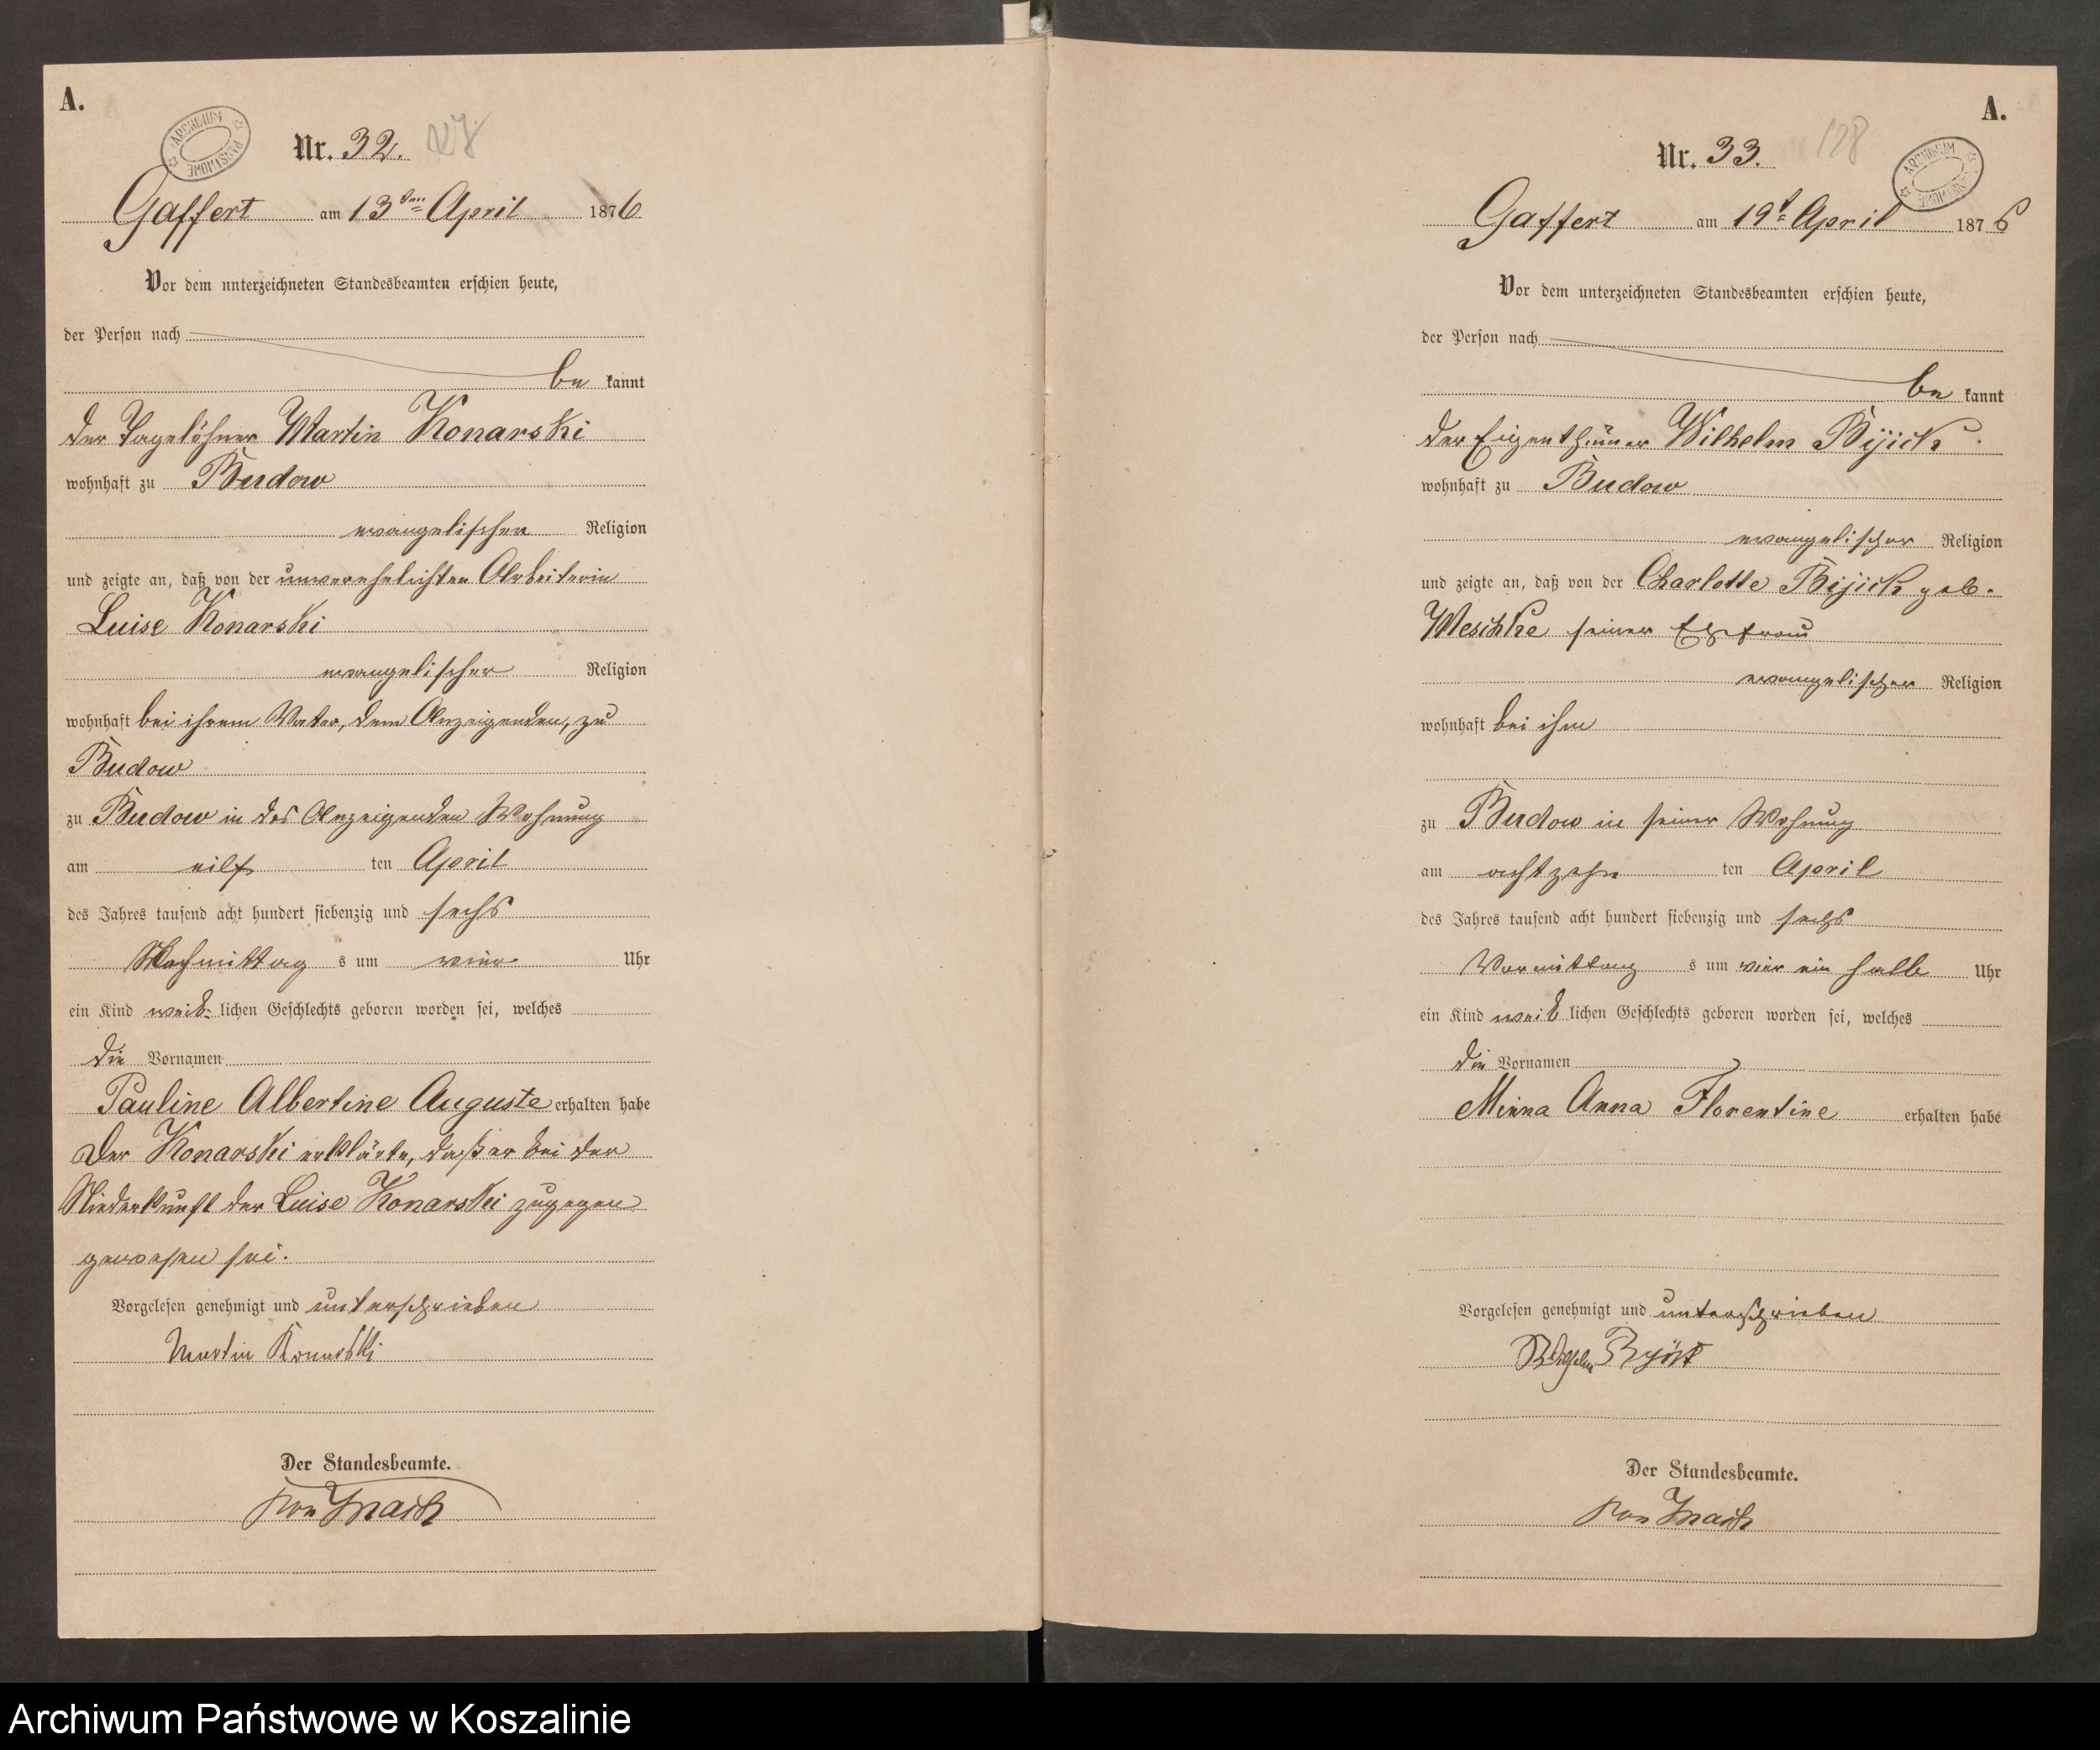 A.
ARCHIWUM PAŃSTWOWE
Nr. 32.
Gaffert am 13ten April 1876
Vor dem unterzeichneten Standesbeamten erschien heute,
der Person nach
be kannt
der Tagelöhner Martin Konarski
wohnhaft zu Budow
evangelischer Religion
und zeigte an, daß von der unverehelichten Arbeiterin
Luise Konarski
evangelischer Religion
wohnhaft bei ihrem Vater, dem Anzeigenden, zu
Budow
zu Budow in des Anzeigenden Wohnung
am eilf ten April
des Jahres tausend acht hundert siebenzig und sechs
Nachmittag s um vier Uhr
ein Kind weib- lichen Geschlechts geboren worden sei, welches
die Vornamen
Pauline Albertine Auguste erhalten habe
Der Konarski erklärte, daß er bei der
Niederkunft der Luise Konarski zugegen
gewesen sei.
Vorgelesen genehmigt und unterschrieben
Martin Konarski
Der Standesbeamte.
A.
ARCHIWUM PAŃSTWOWE
Nr. 33. 128
Gaffert am 19t April 1876
Vor dem unterzeichneten Standesbeamten erschien heute,
der Person nach
be kannt
der Eigenthümer Wilhelm Bijick
wohnhaft zu Budow
evangelischer Religion
und zeigte an, daß von der Charlotte Bijick geb.
Weschke seiner Ehefrau
evangelischer Religion
wohnhaft bei ihm
zu Budow in seiner Wohnung
am achtzehn ten April
des Jahres tausend acht hundert siebenzig und sechs
Vormittag s um vier ein halb Uhr
ein Kind weib lichen Geschlechts geboren worden sei, welches
die Vornamen
Minna Anna Florentine erhalten habe
Vorgelesen genehmigt und unterschrieben
Wilhelm
Der Standesbeamte.
Archiwum Państwowe w Koszalinie